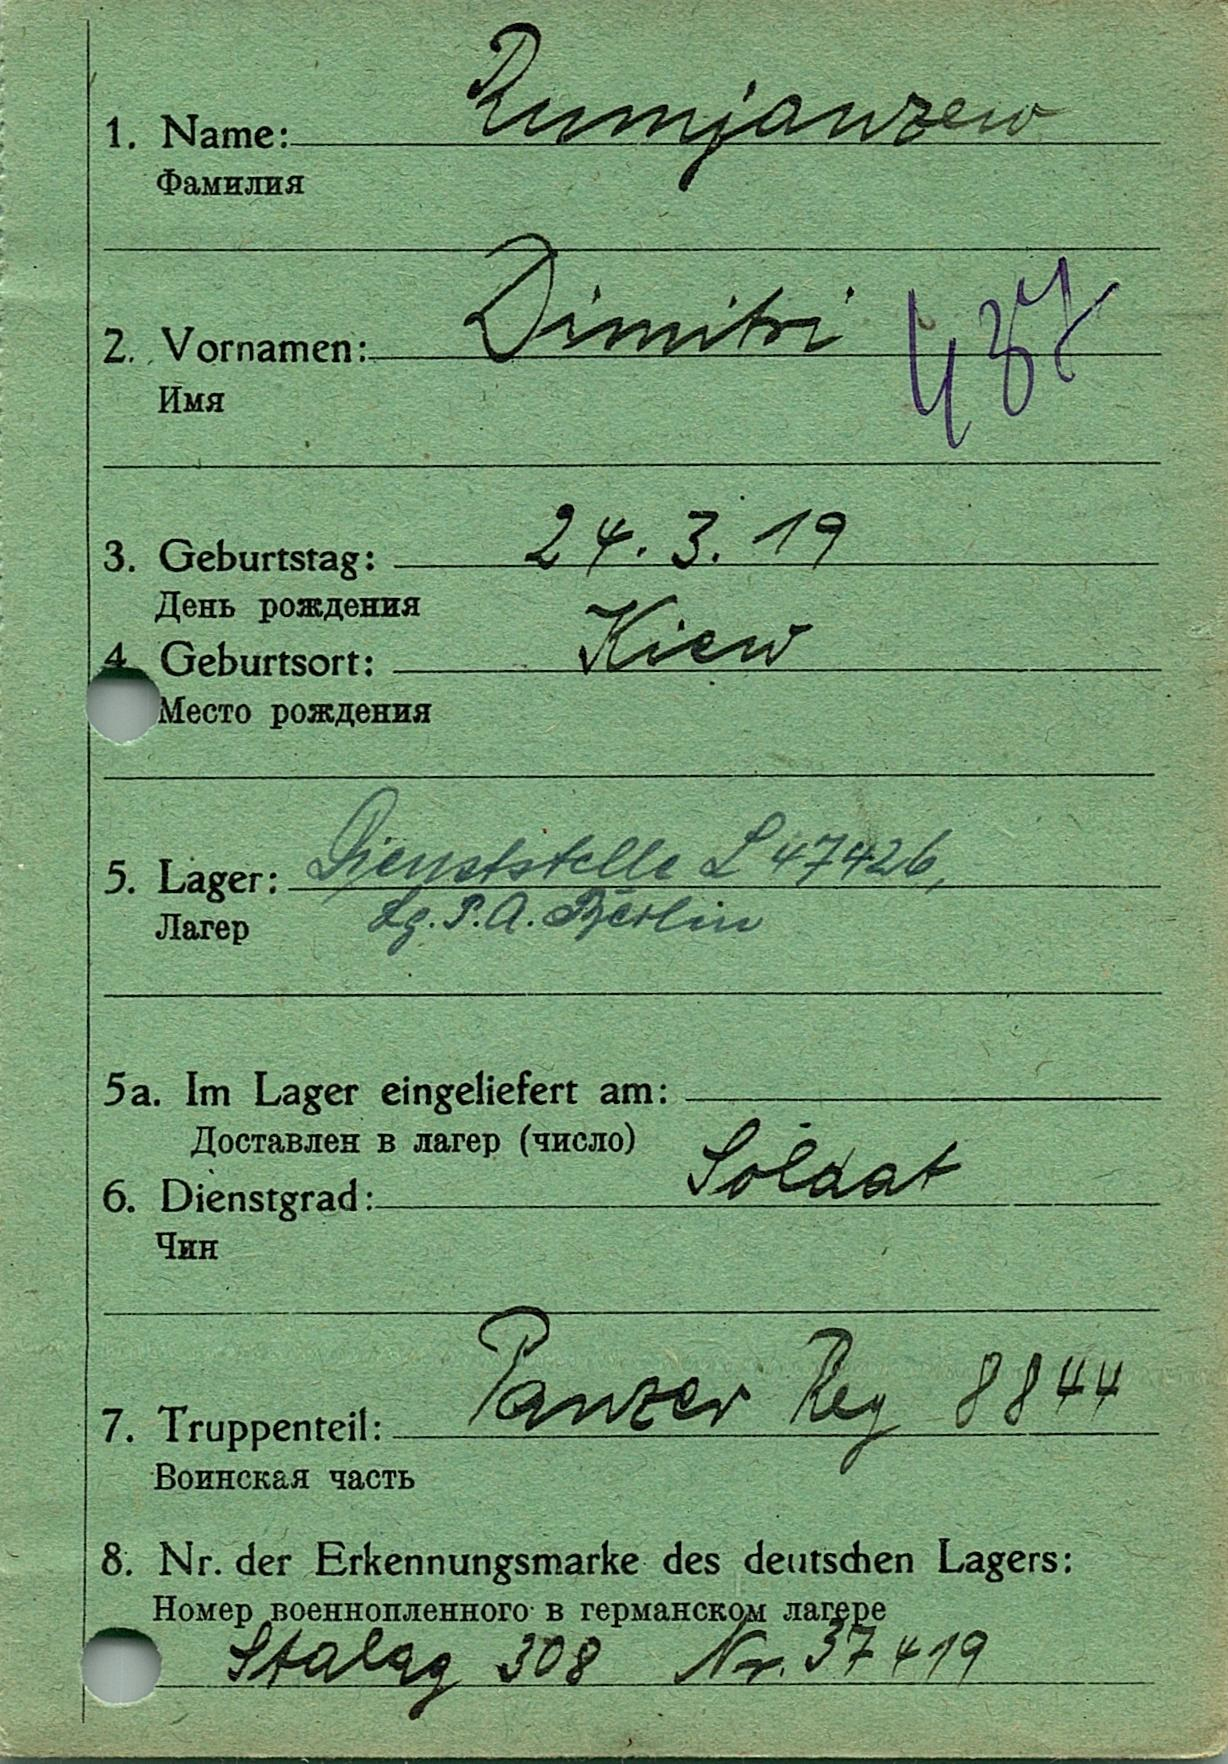 1. Name: Rumjanzew
Фамилия
2. Vornamen: Dimitri 437
Имя
3. Geburtstag: 24. 3. 19
День рождения
4. Geburtsort: Kiew
Место рождения
5. Lager: Dienststelle L 47426,
Лагер Lg. P.A. Berlin
5a. Im Lager eingeliefert am:
Доставлен в лагер (число)
6. Dienstgrad: Soldat
Чин
7. Truppenteil: Panzer Reg 8844
Воинская часть
8. Nr. der Erkennungsmarke des deutschen Lagers:
Номер военнопленного в германском лагере
Stalag 308 Nr. 37419